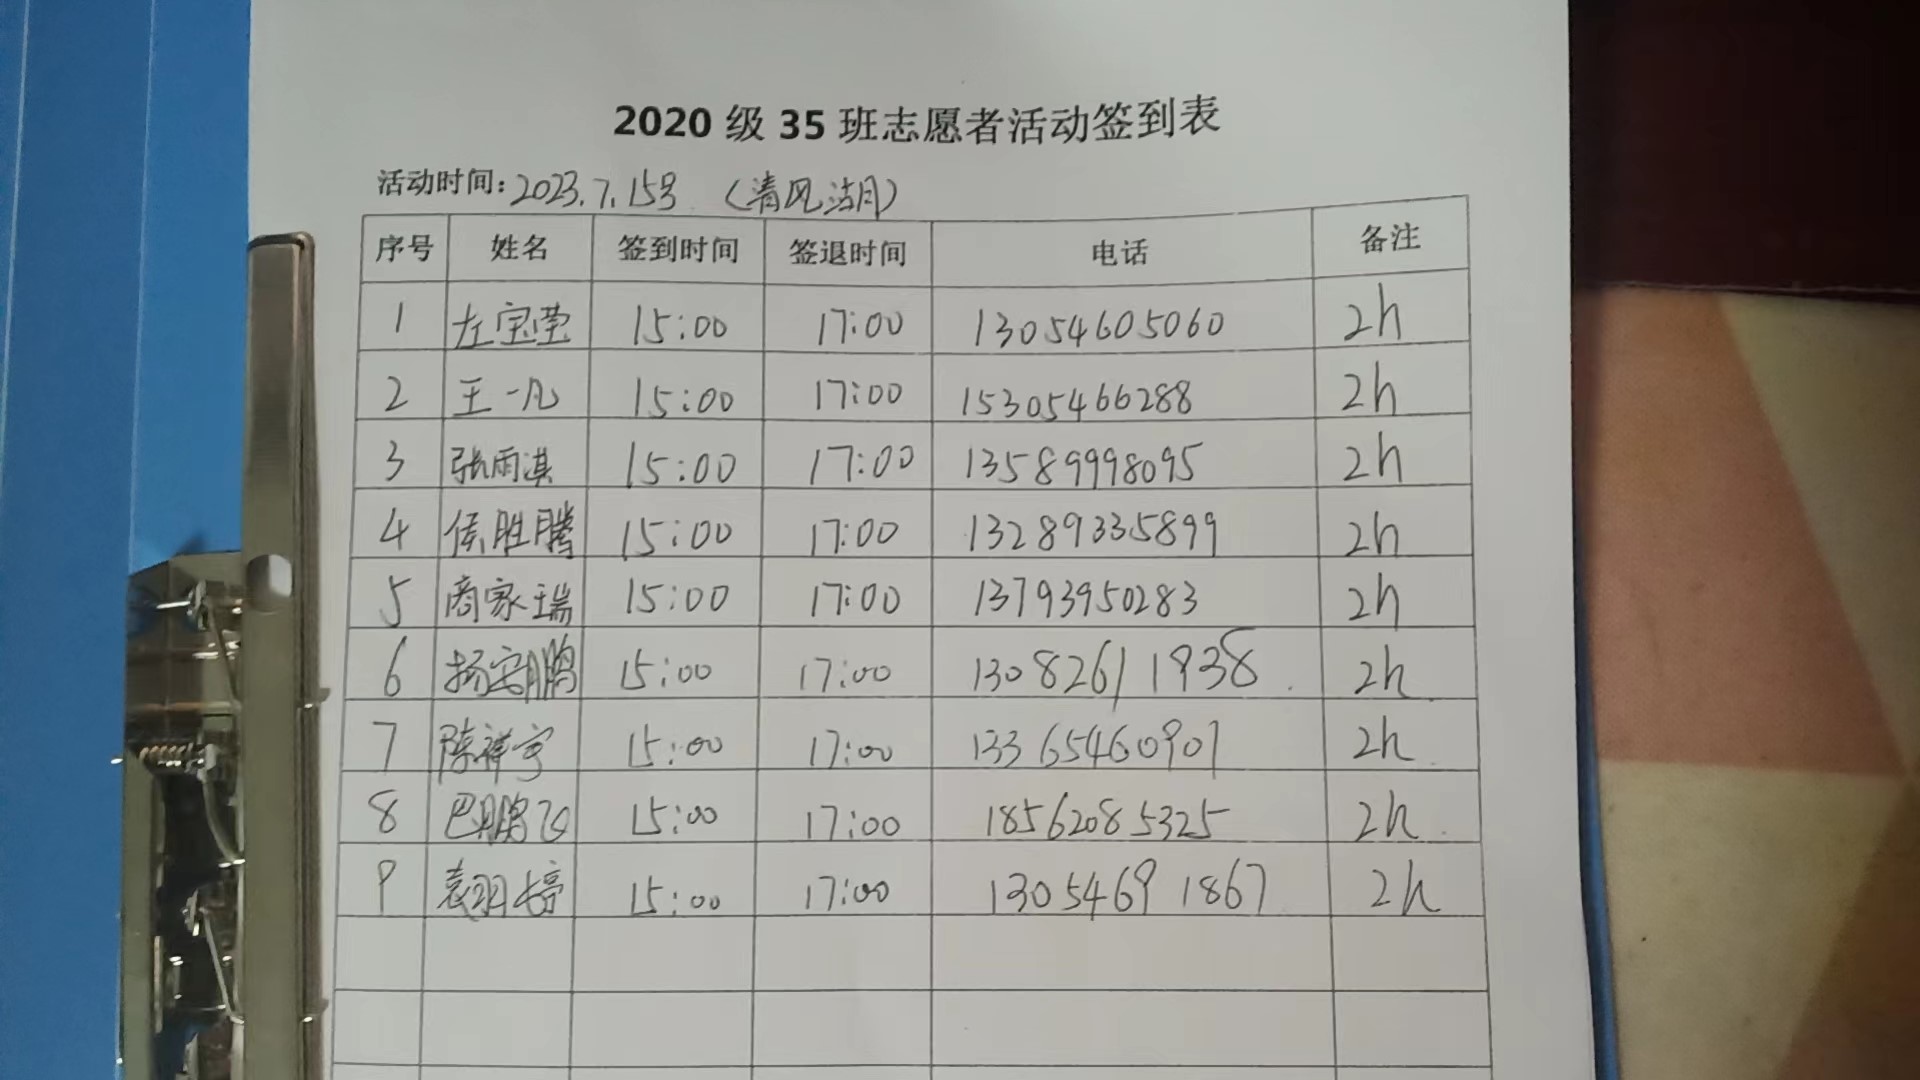 2020 级 35 班志愿者活动签到表
活动时间: 2023.7.15号 (清风湖)
序号 姓名 签到时间 签退时间 电话 备注
1 左宝莹 15:00 17:00 13054605060 2h
2 王一凡 15:00 17:00 15305466288 2h
3 张雨淇 15:00 17:00 13589998095 2h
4 侯胜腾 15:00 17:00 13289335899 2h
5 商家瑞 15:00 17:00 13793950283 2h
6 杨安鹏 15:00 17:00 13082611938 2h
7 陈祥宇 15:00 17:00 13365460901 2h
8 巴鹏飞 15:00 17:00 18562085325 2h
9 袁羽婷 15:00 17:00 13054691867 2h